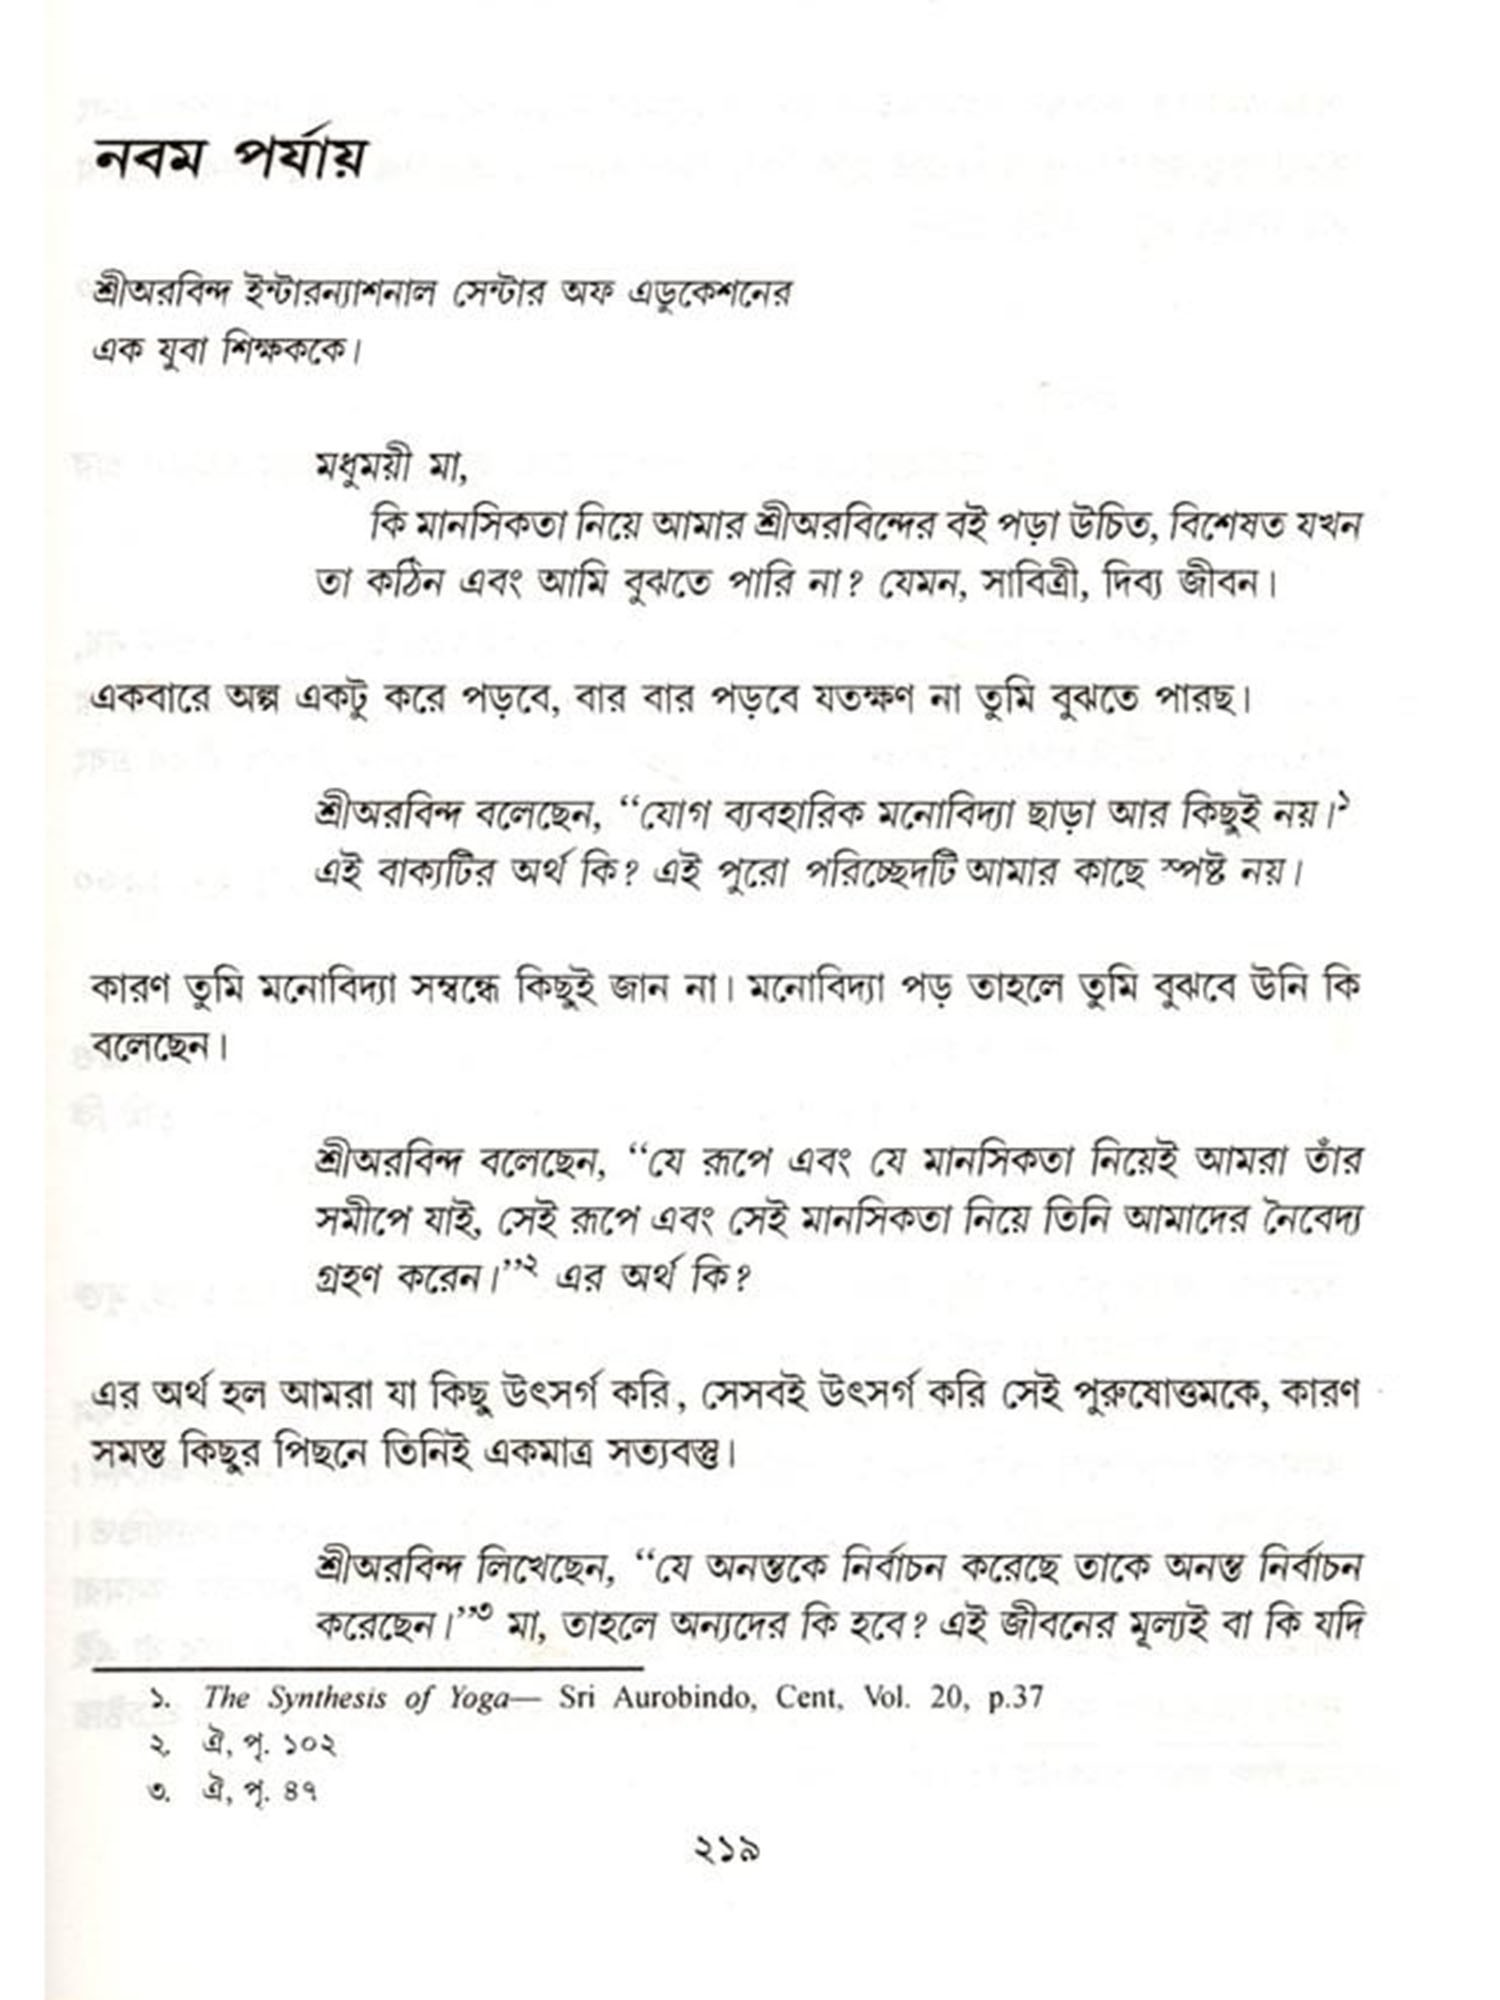 নবম পর্যায়
শ্রীঅরবিন্দ ইন্টারন্যাশনাল সেন্টার অফ এডুকেশনের
এক যুবা শিক্ষককে।
মধুময়ী মা,
কি মানসিকতা নিয়ে আমার শ্রীঅরবিন্দের বই পড়া উচিত, বিশেষত যখন
তা কঠিন এবং আমি বুঝতে পারি না? যেমন, সাবিত্রী, দিব্য জীবন।
একবারে অল্প একটু করে পড়বে, বার বার পড়বে যতক্ষণ না তুমি বুঝতে পারছ।
শ্রীঅরবিন্দ বলেছেন, “যোগ ব্যবহারিক মনোবিদ্যা ছাড়া আর কিছুই নয়।১
এই বাক্যটির অর্থ কি? এই পুরো পরিচ্ছেদটি আমার কাছে স্পষ্ট নয়।
কারণ তুমি মনোবিদ্যা সম্বন্ধে কিছুই জান না। মনোবিদ্যা পড় তাহলে তুমি বুঝবে উনি কি
বলেছেন।
শ্রীঅরবিন্দ বলেছেন, “যে রূপে এবং যে মানসিকতা নিয়েই আমরা তাঁর
সমীপে যাই, সেই রূপে এবং সেই মানসিকতা নিয়ে তিনি আমাদের নৈবেদ্য
গ্রহণ করেন।”২ এর অর্থ কি?
এর অর্থ হল আমরা যা কিছু উৎসর্গ করি, সেসবই উৎসর্গ করি সেই পুরুষোত্তমকে, কারণ
সমস্ত কিছুর পিছনে তিনিই একমাত্র সত্যবস্তু।
শ্রীঅরবিন্দ লিখেছেন, “যে অনন্তকে নির্বাচন করেছে তাকে অনন্ত নির্বাচন
করেছেন।”৩ মা, তাহলে অন্যদের কি হবে? এই জীবনের মূল্যই বা কি যদি
১. The Synthesis of Yoga— Sri Aurobindo, Cent, Vol. 20, p.37
২. ঐ, পৃ. ১০২
৩. ঐ, পৃ. ৪৭
২১৯